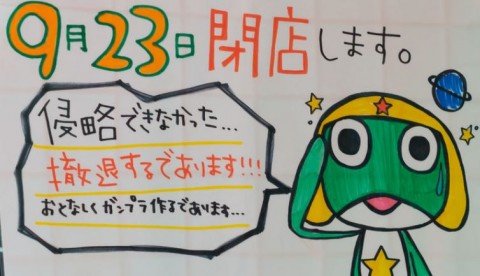 9月23日閉店します。
侵略できなかった...
撤退するであります!!!
おとなしくガンプラ作るであります...